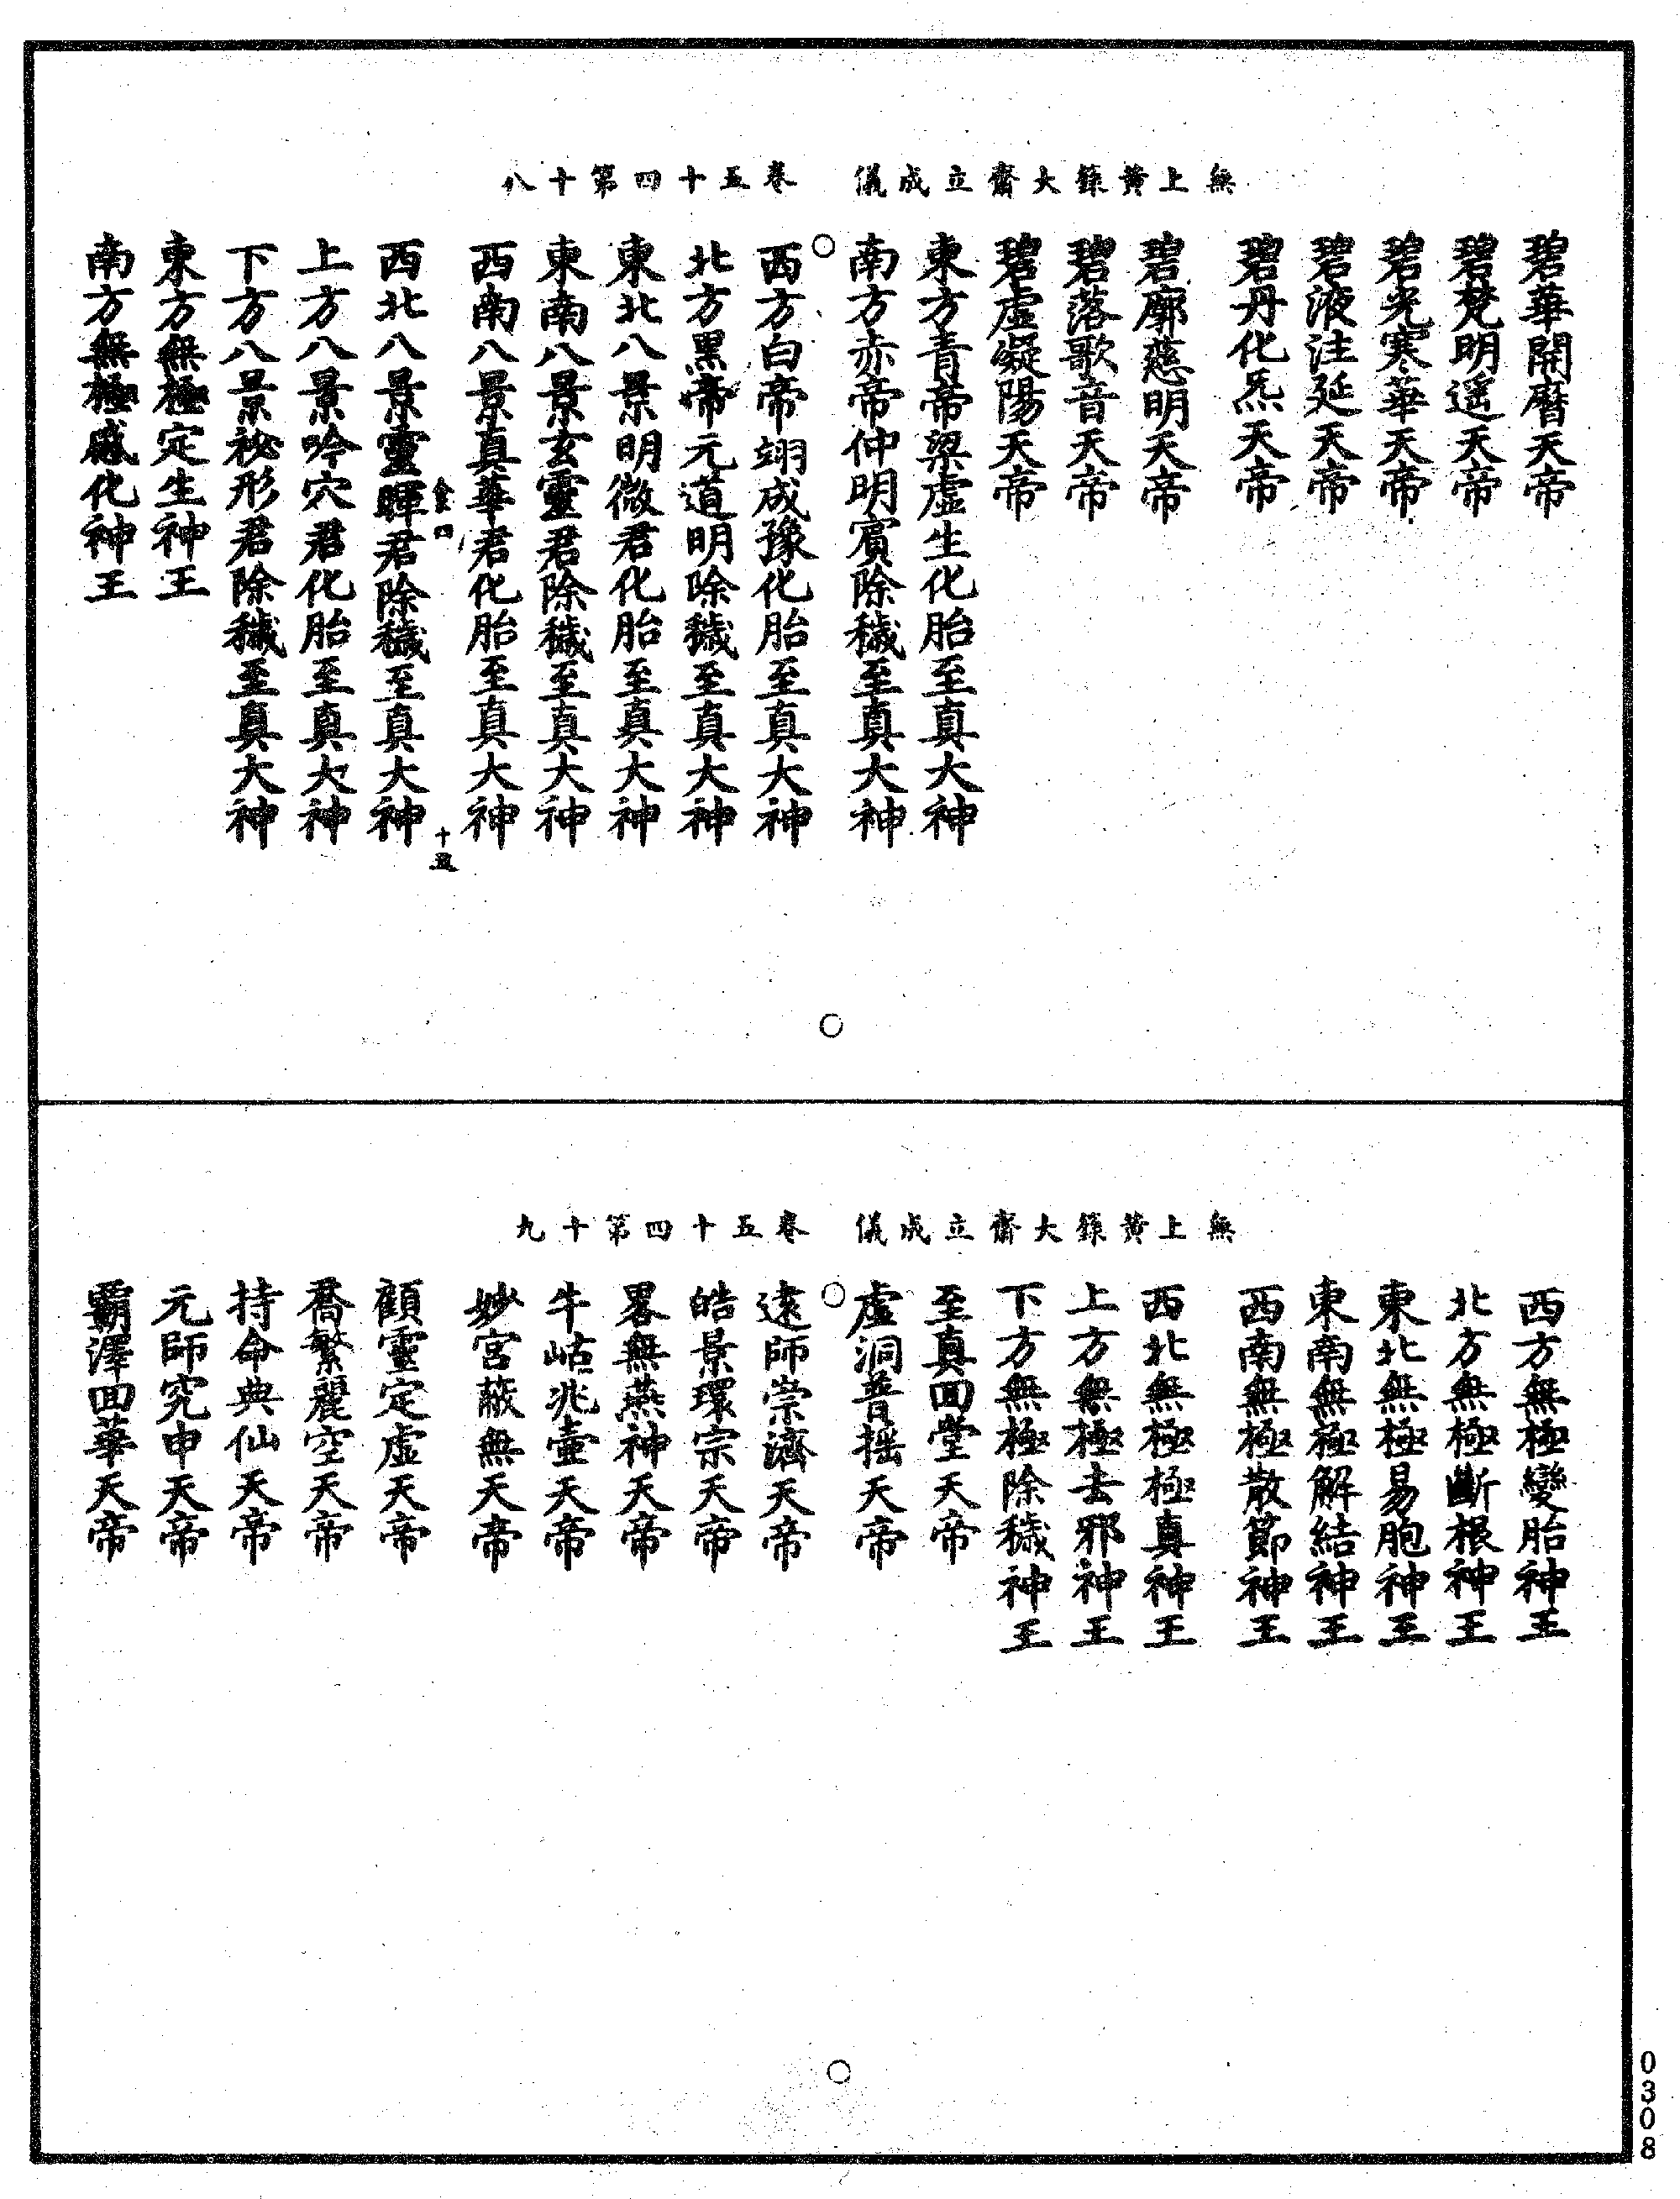 無上黃籙大齋立成儀　卷五十四第十八
碧華開曆天帝
碧梵明遥天帝
碧光寒華天帝
碧液洼延天帝
碧丹化炁天帝
碧廓慈明天帝
碧落歌音天帝
碧虛凝陽天帝
東方青帝梁虛生化胎至真大神
南方赤帝仲明賓除穢至真大神
西方白帝翊成豫化胎至真大神
北方黑帝元道明除穢至真大神
東北八景明微君化胎至真大神
東南八景玄靈君除穢至真大神
西南八景真華君化胎至真大神
食四　十五
西北八景靈暉君除穢至真大神
上方八景吟穴君化胎至真大神
下方八景祕形君除穢至真大神
東方無極定生神王
南方無極感化神王
無上黃籙大齋立成儀　卷五十四第十九
西方無極變胎神王
北方無極斷根神王
東北無極易胞神王
東南無極解結神王
西南無極散節神王
西北無極極真神王
上方無極去邪神王
下方無極除穢神王
至真回堂天帝
虛洞普摇天帝
遠師崇濟天帝
皓景環宗天帝
畧無燕神天帝
牛岵兆壷天帝
妙宮蔽無天帝
顀靈定虛天帝
喬繁麗空天帝
持命典仙天帝
元師究申天帝
霸澤回華天帝
0308